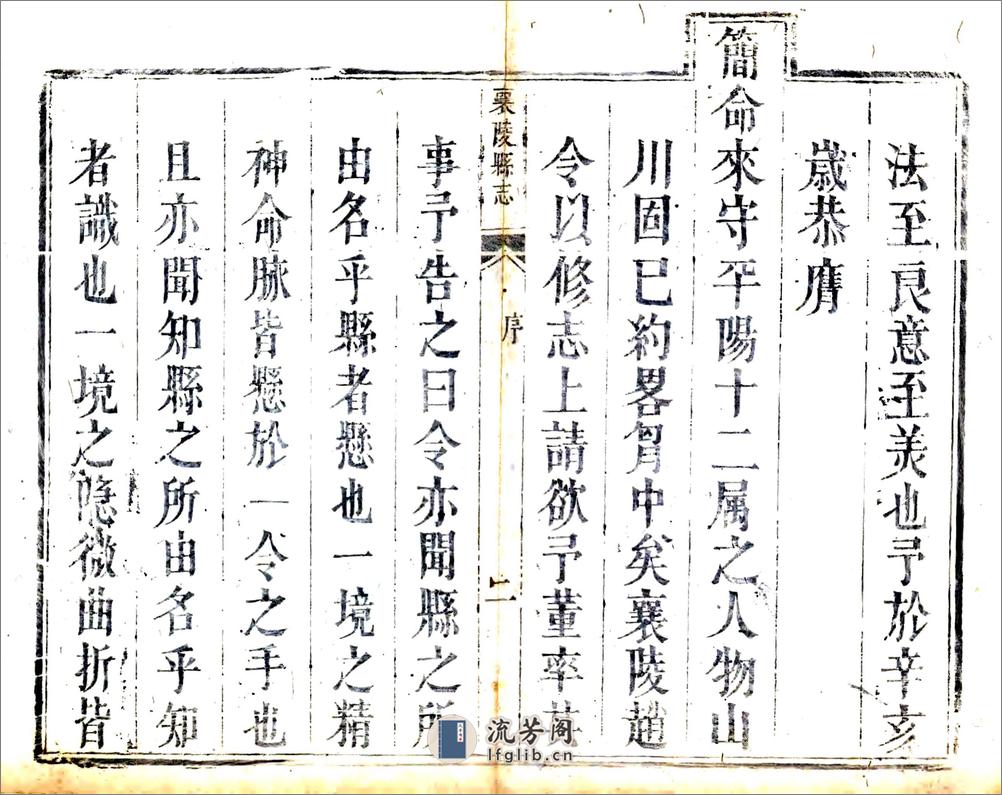 法至良意至美也予於辛亥
歲恭膺
簡命來守平陽十二属之人物山
川固已約畧胷中矣襄陵趙
令以修志上請欲予董率其
襄陵縣志 序 二
事予告之曰令亦聞縣之所
由名乎縣者懸也一境之精
神命脉皆懸於一令之手也
且亦聞知縣之所由名乎知
者識也一境之隐微曲折皆
流芳阁
lfglib.cn